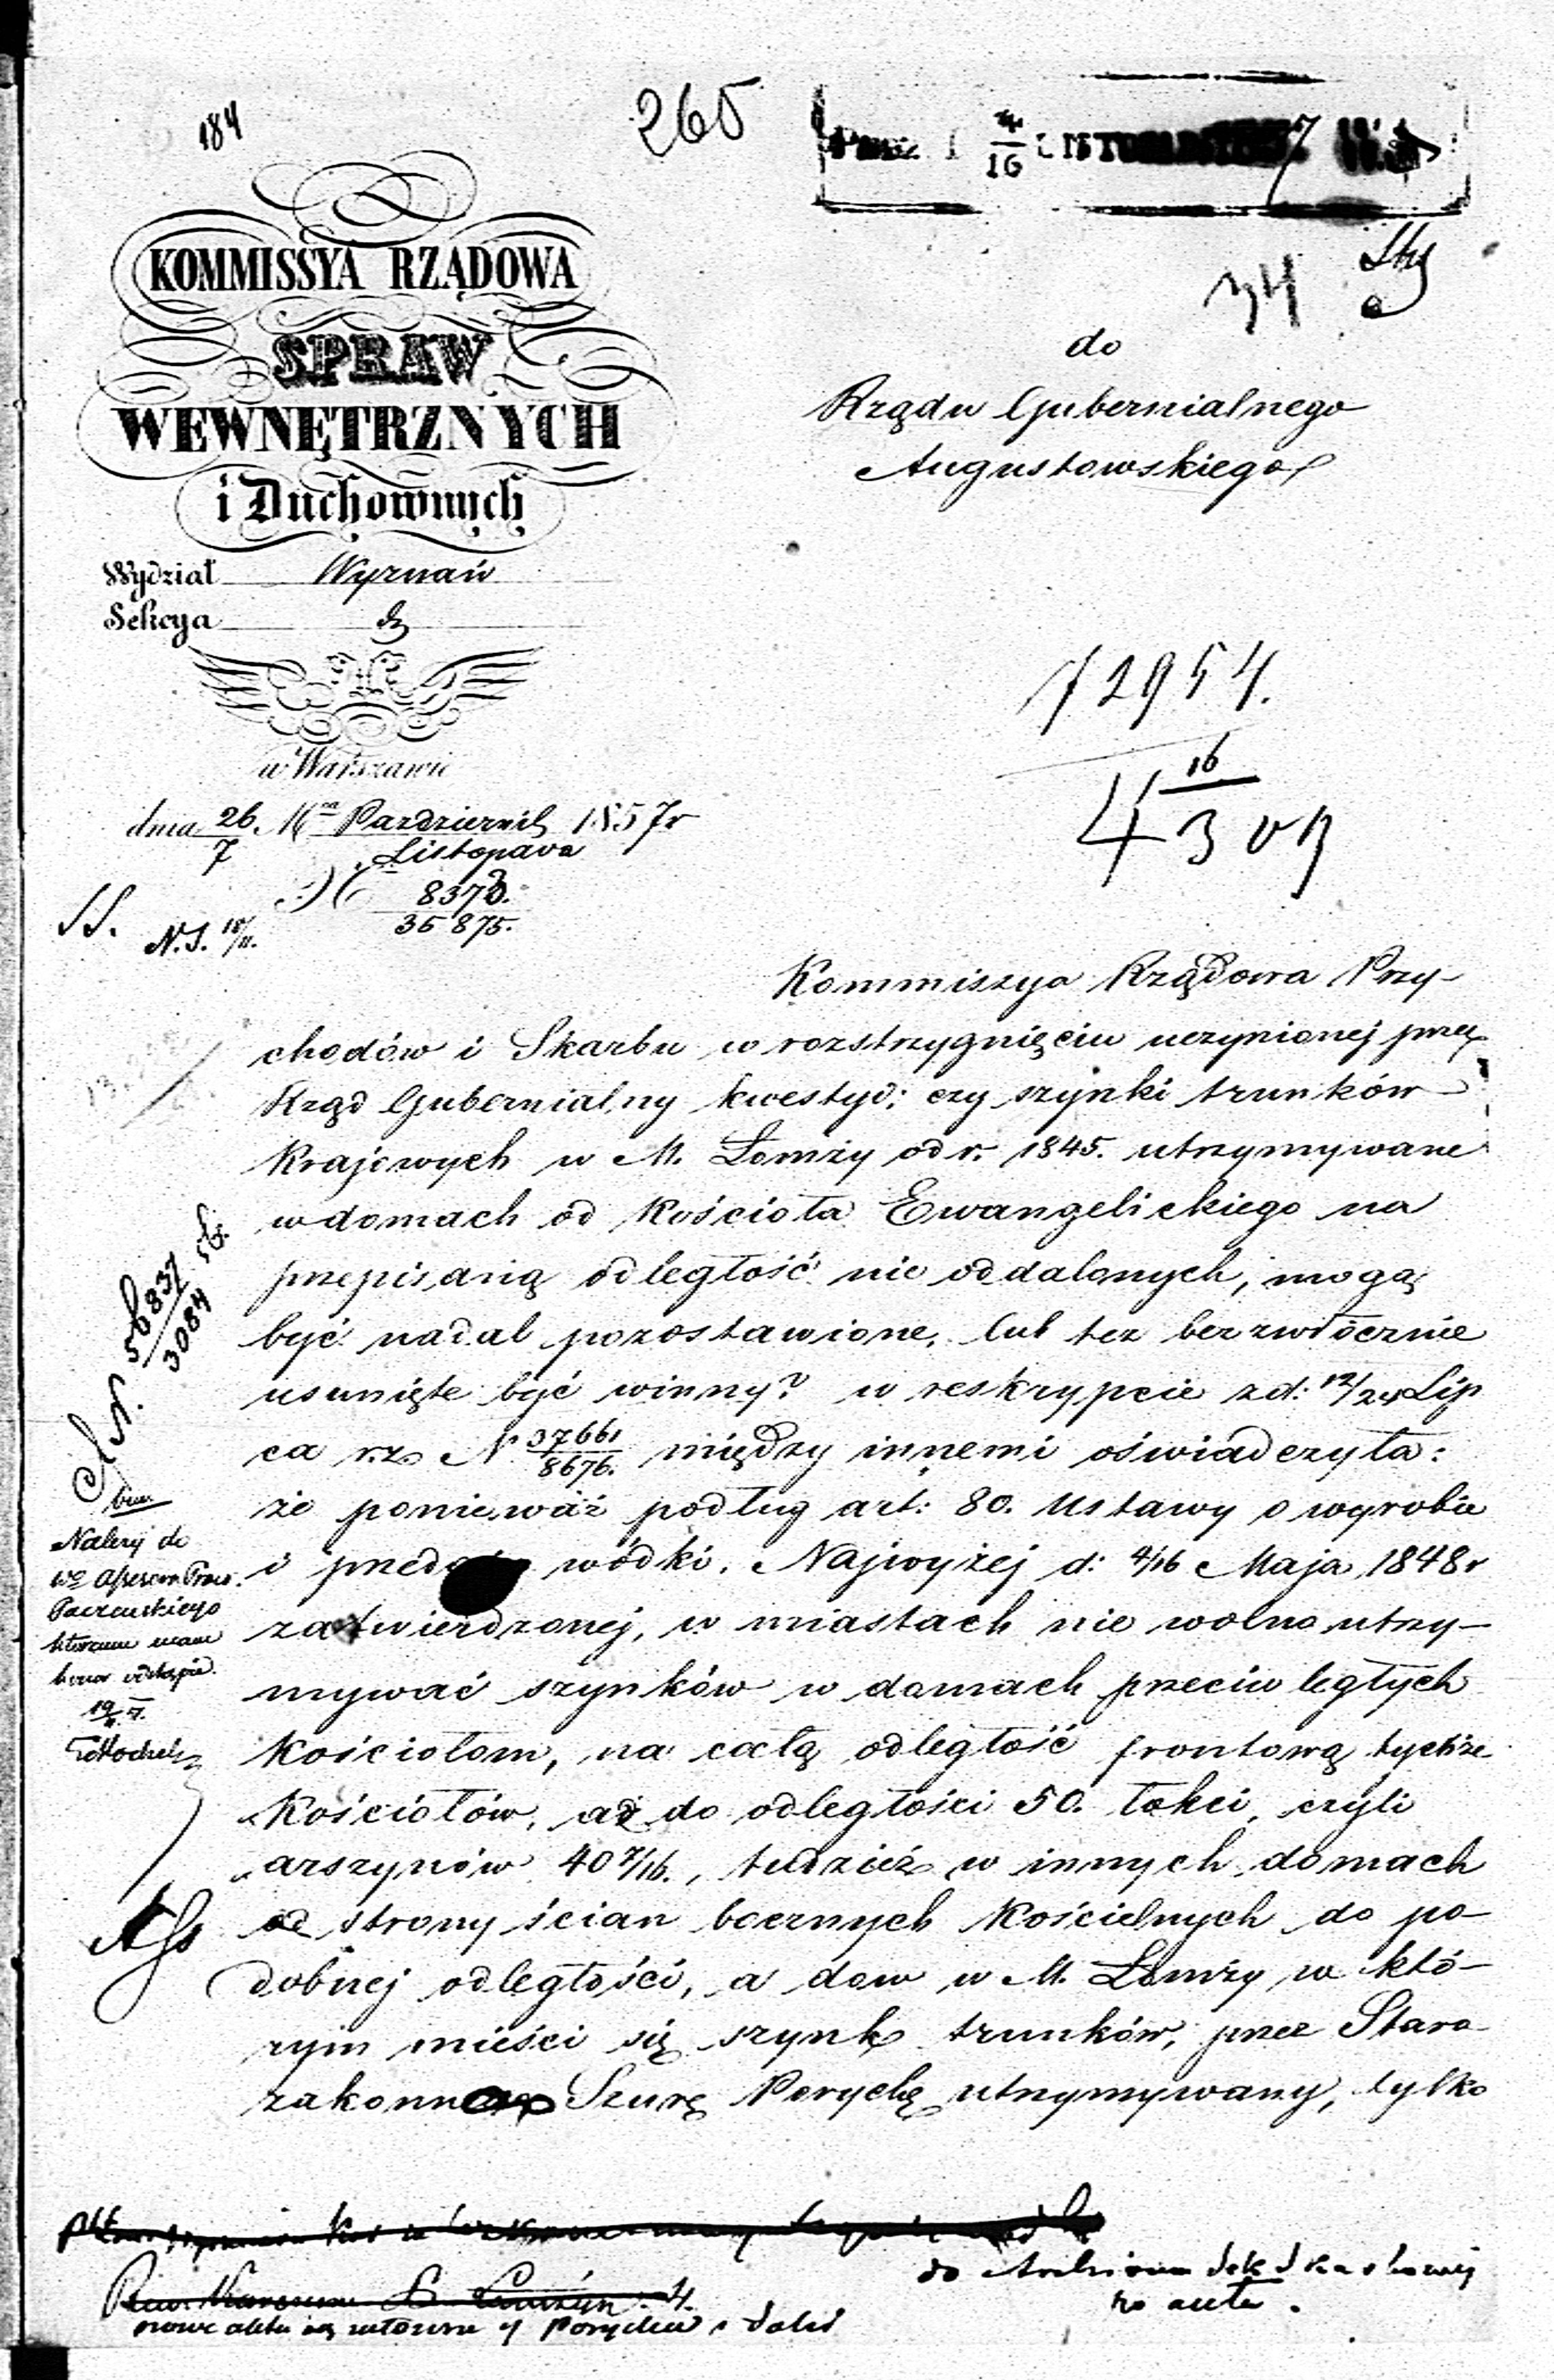 184
265
4/16
34
KOMMISSYA RZĄDOWA
SPRAW
WEWNĘTRZNYCH
i Duchownych
Wydział Wyznań
Sekcya
w Warszawie
dnia 26/7 Październik/Listopada 1857 r
8373.
35875.
SS.
do
Rządu Gubernialnego
Augustowskiego
72954.
16
Kommissya Rządowa Przy-
chodów i Skarbu w rozstrzygnięciu uczynionej przez
Rząd Gubernialny kwestyi; czy szynki trunków
Krajowych w M. Łomży od r. 1845. utrzymywane
w domach od Kościoła Ewangelickiego na
przepisaną odległość nie oddalonych, mogą
być nadal pozostawione, lub też bezzwłocznie
usunięte być winny? w reskrypcie z d: 12/24 Lip
ca r. z. N 37661/8676. między innemi oświadczyła:
że ponieważ podług art: 80. Ustawy o wyrobie
i wódki, Najwyżej d: 4/16 Maja 1848 r
zatwierdzonej, w miastach nie wolno utrzy-
mywać szynków w domach przeciwległych
Kościołom, na całą odległość frontową tychże
Kościołów, aż do odległości 50. łokci, czyli
arszynów 40 7/16., tudzież w innych domach
od strony ścian bocznych Kościelnych do po-
dobnej odległości, a dom w M. Łomży w któ-
rym mieści się szynk trunków, przez Staro-
zakonną Szurę Perychę utrzymywany, tylko
56837/3084
Należy do
19/11
do Archiwum Sek Skarbowej